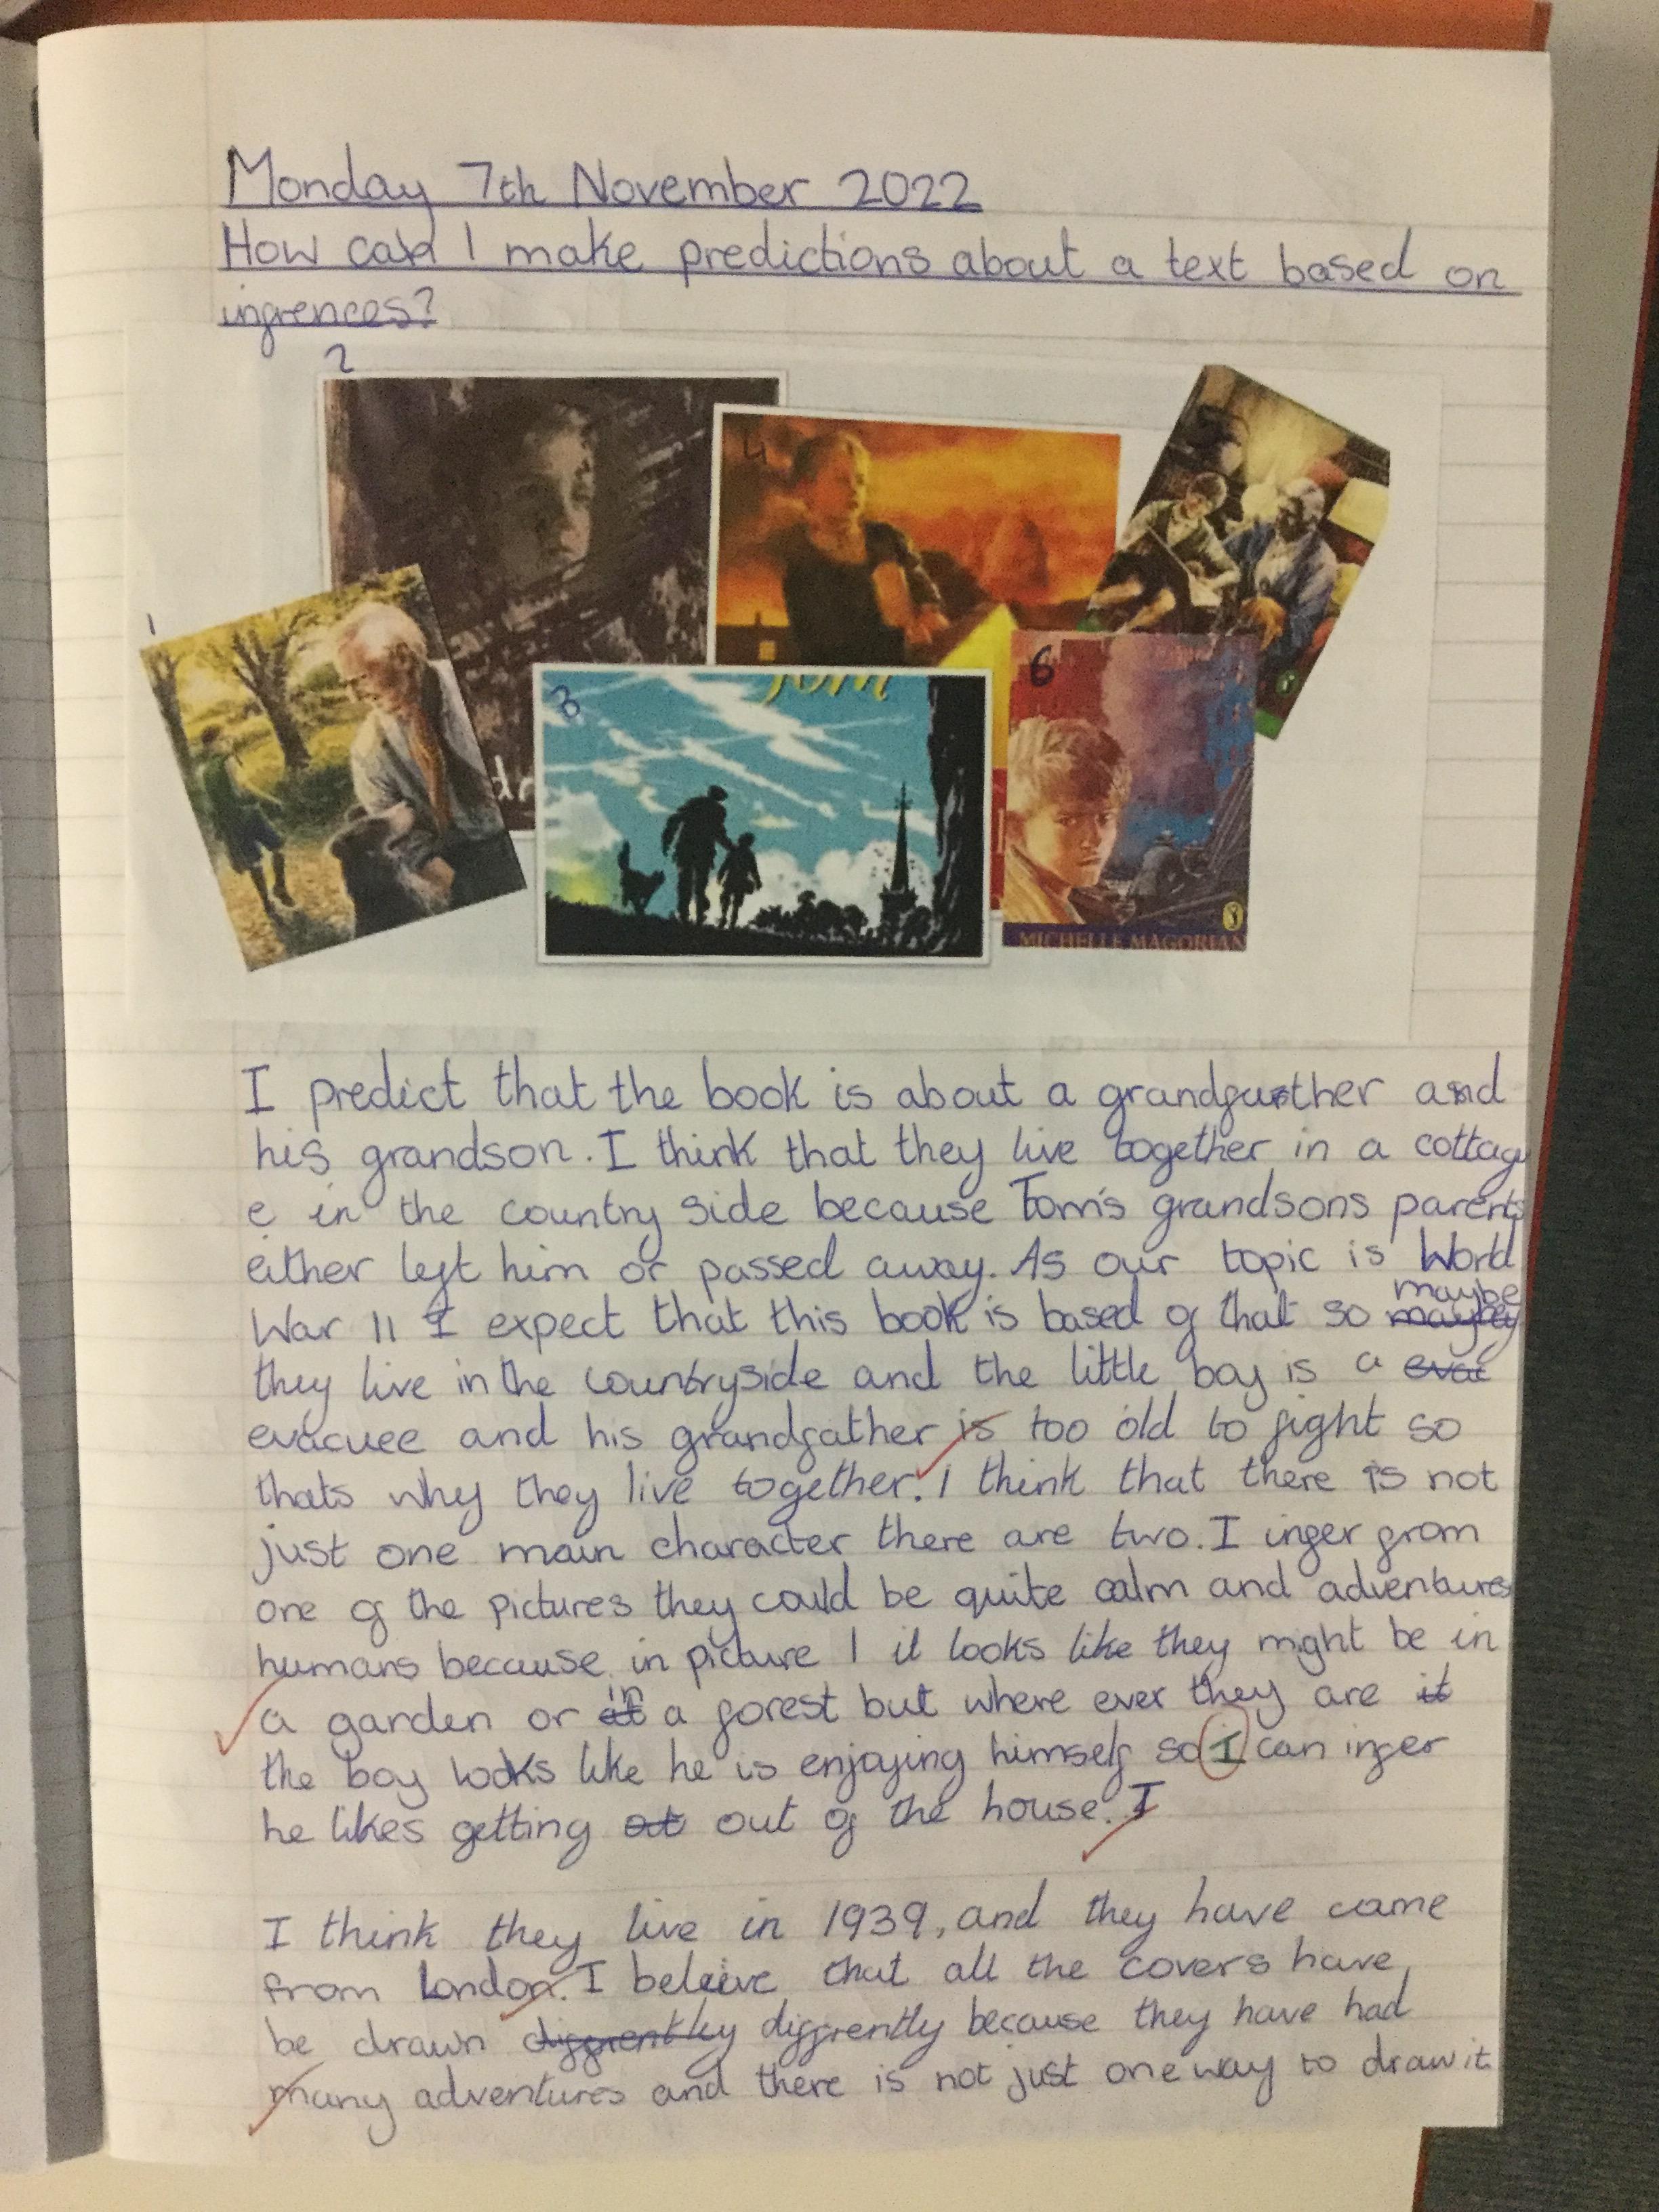 Monday 7th November 2022
How can I make predictions about a text based on
infrences?
2
4
1
3
Tom
6
dn
MICHELLE MAGORIAN
I predict that the book is about a grandfather and
his grandson. I think that they live together in a cottag
e in the country side because Tom's grandsons parents
either left him or passed away. As our topic is World
War II I expect that this book is based of that so maybe
they live in the countryside and the little boy is a
evacuee and his grandfather is too old to fight so
thats why they live together. I think that there is not
just one main character there are two. I infer from
one of the pictures they could be quite calm and adventures
humans because in picture 1 it looks like they might be in
a garden or in a forest but where ever they are
the boy looks like he is enjoying himself so I can infer
he likes getting out of the house. I
I think they live in 1939, and they have came
from London. I beleive that all the covers have
be drawn diffrently because they have had
many adventures and there is not just one way to draw it